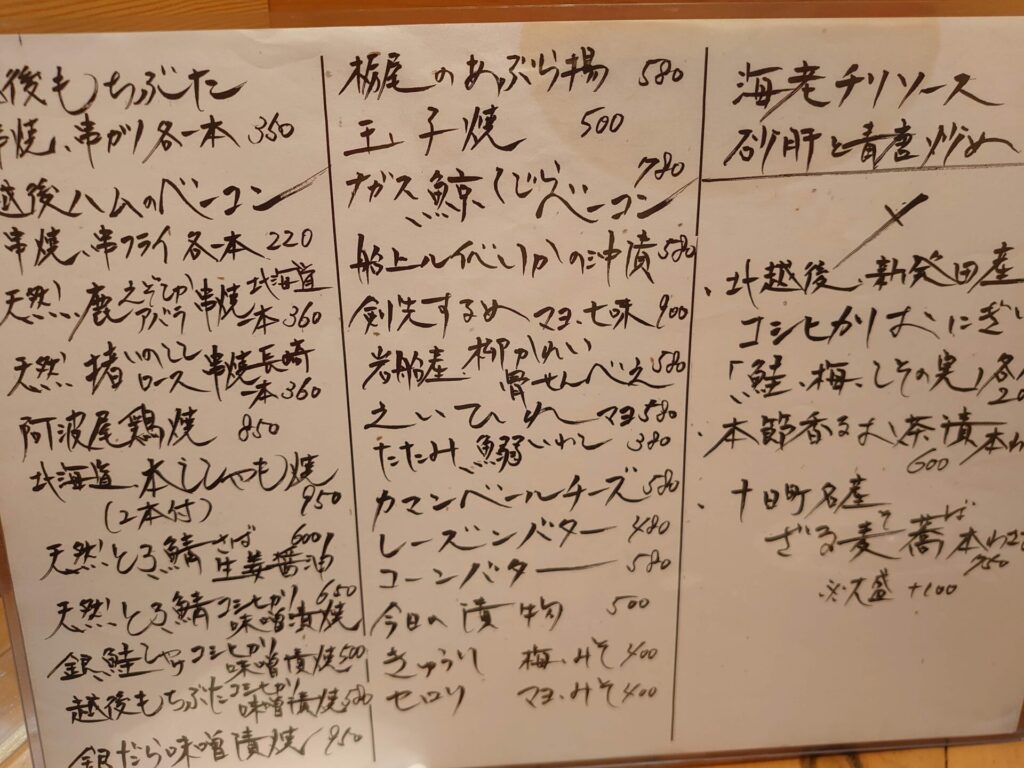 後もちぶた
串焼、串かつ各一本 350
越後ハムのベーコン
串焼、串フライ各一本 220
天然!鹿えぞしか アバラ串焼 北海道 一本360
天然!猪いのしし ロース串焼 長崎 一本360
阿波尾鶏焼 850
北海道本ししゃも焼 950
(2本付)
天然!とろ鯖さば 生姜醤油 600
天然!とろ鯖コシヒカリ味噌漬焼 650
銀鮭しゃけコシヒカリ味噌漬焼 500
越後もちぶたコシヒカリ味噌漬焼 580
銀だら味噌漬焼 950
栃尾のあぶら揚 580
玉子焼 500
ナガス鯨くじらベーコン 780
船上ルイベいかの沖漬 580
剣先するめ マヨ、七味 900
岩船産 柳かれい 骨せんべえ 580
えいひれ マヨ 580
たたみ鰯いわし 380
カマンベールチーズ 580
レーズンバター 480
コーンバター 580
今日の漬物 500
きゅうり 梅、みそ 400
セロリ マヨ、みそ 400
海老チリソース
砂肝と青唐炒め
・北越後、新発田産
コシヒカリおにぎ
「鮭、梅、しその実」各
20
・本節香るお茶漬 本わ
600
・十日町名産
ざる蕎麦 そば 本わさ
750
※大盛 +100